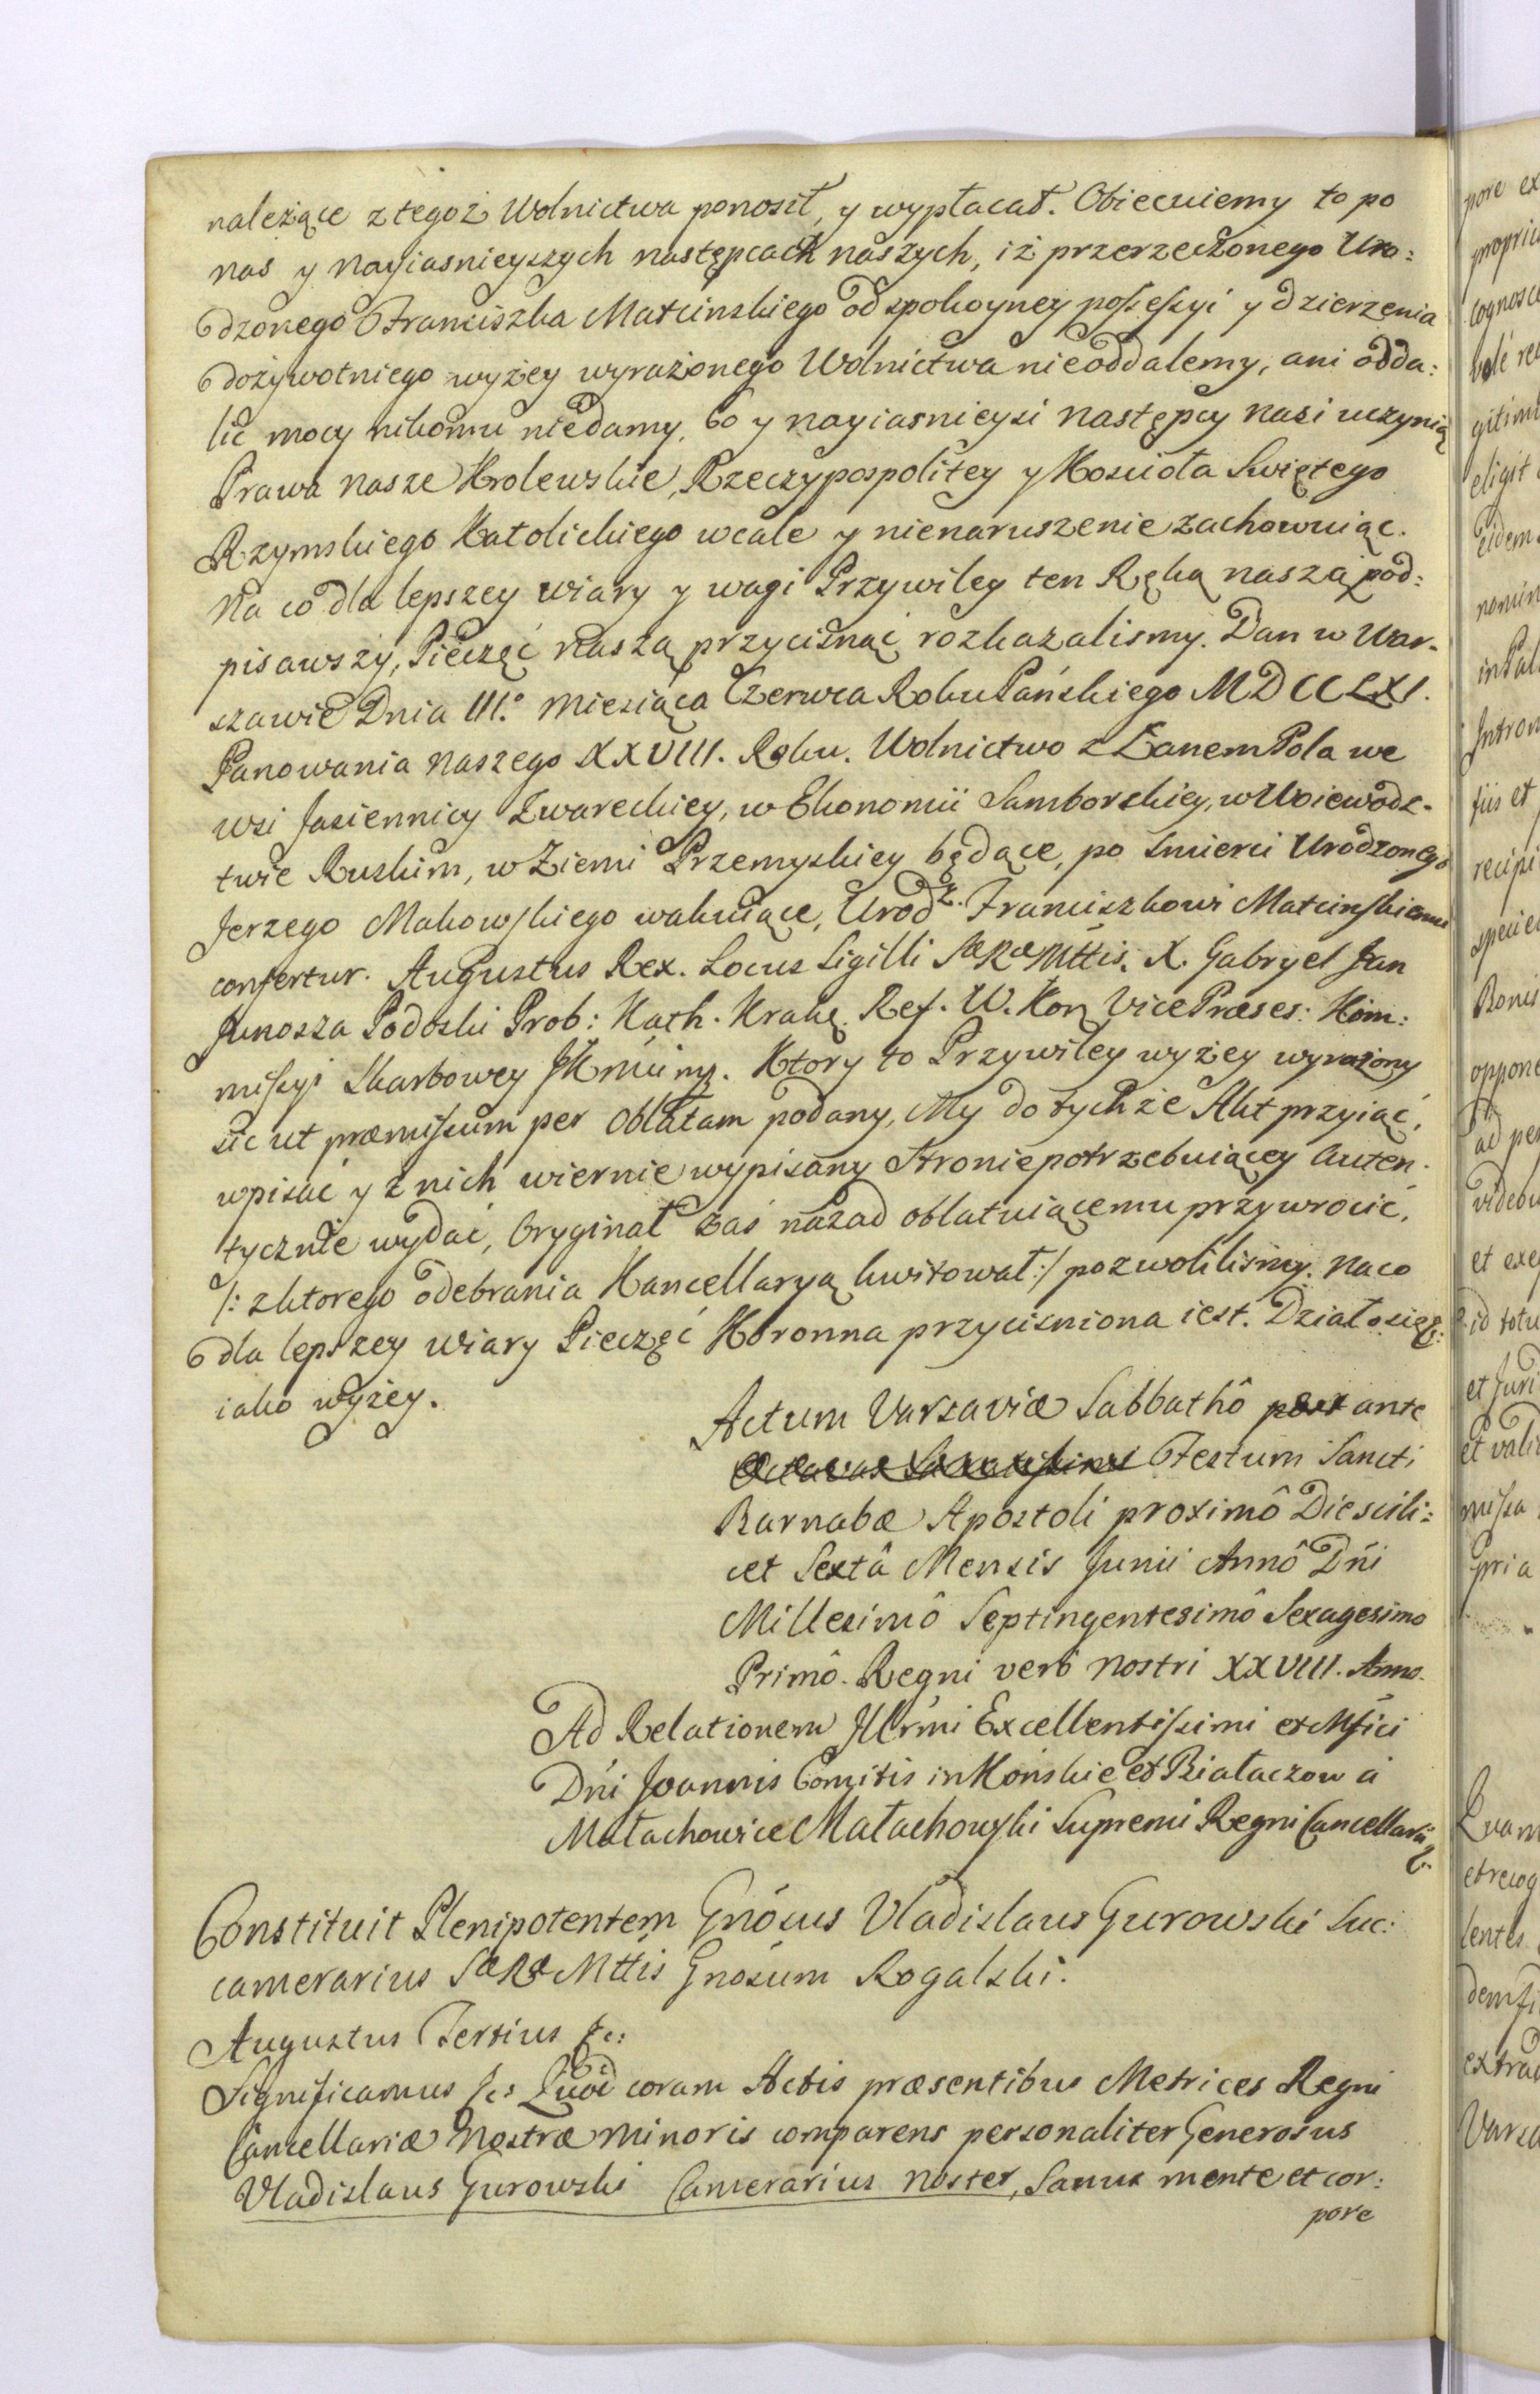 należące z tegoż Wolnictwa ponosił, y wypłacał. Obiecuiemy to po
nas y Nayiasnieyszych następcach naszych, iż przerzeczonego Uro:
dzonego Franciszka Matcinskiego od spokoyney possessyi y dzierzenia
dożywotniego wyżey wyrażonego Wolnictwa nieoddalemy, ani odda:
lic mocy nikomu niedamy, Co y nayiasnieysi następcy nasi uczynią
Prawa nasze Krolewskie, Rzeczypospolitey y Kosciola Swiętego
Rzymskiego Katolickiego wcale y nienaruszenie zachowuiąc.
Na co dla lepszey wiary y wagi Przywiley ten Ręką naszą pod:
pisawszy, Pieczęć naszą przycisnąć rozkazalismy. Dan w War-
szawie Dnia III.º Miesiąca Czerwca Roku Pańskiego MDCCLXI.
Panowania naszego XXVIII. Roku. Wolnictwo z Łanem Pola we
wsi Jasiennicy Zwareckiey, w Ekonomii Samborskiey, w Woiewodz-
twie Ruskim, w Ziemi Przemyskiey będące, po smierci Urodzonego
Jerzego Makowskiego wakuiące, Urodz. Franciszkowi Matcinskiemu
confertur. Augustus Rex. Locus Sigilli Sæ Ræ Mttis. X. Gabryel Jan
Junosza Podoski Prob: Kath. Krak. Ref. W. Kon Vice Præses: Kom:
missyi Skarbowey JKmciny. Ktory to Przywiley wyżey wyrażony
sic ut præmissum per Oblatam podany, My do tychże Akt przyiąć,
wpisać y z nich wiernie wypisany Stronie potrzebuiącey auten-
tycznie wydać, Oryginał zaś nazad oblatuiącemu przywrocić,
/: z ktorego odebrania Kancellaryą kwitował :/ pozwolilismy. Na co
dla lepszey wiary Pieczęć Koronna przycisniona iest. Działo się
iako wyżey.
Actum Varsaviæ Sabbathô post ante
Festum Sancti
Barnabæ Apostoli proximô Die scili:
cet Sextâ Mensis Junii Annô Dńi
Millesimô Septingentesimô Sexagesimo
Primô. Regni verô nostri XXVIII. Anno.
Ad Relationem Illrmi Excellentissimi et Mfici
Dńi Joannis Comitis in Końskie et Białaczow a
Małachowice Małachowski Supremi Regni Cancellarii
Constituit Plenipotentem Gnósus Vladislaus Gurowski Suc:
camerarius Sæ Ræ Mttis Gnósum Rogalski.
Augustus Tertius &c:
Significamus &c: Quod coram Actis præsentibus Metrices Regni
Cancellariæ Nostræ Minoris comparens personaliter Generosus
Vladislaus Gurowski Camerarius noster, Sanus mente et cor:
pore